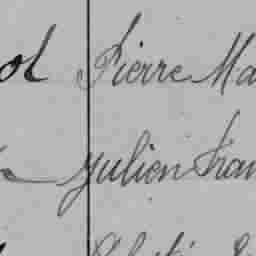 ol Pierre Ma
Julien Fran